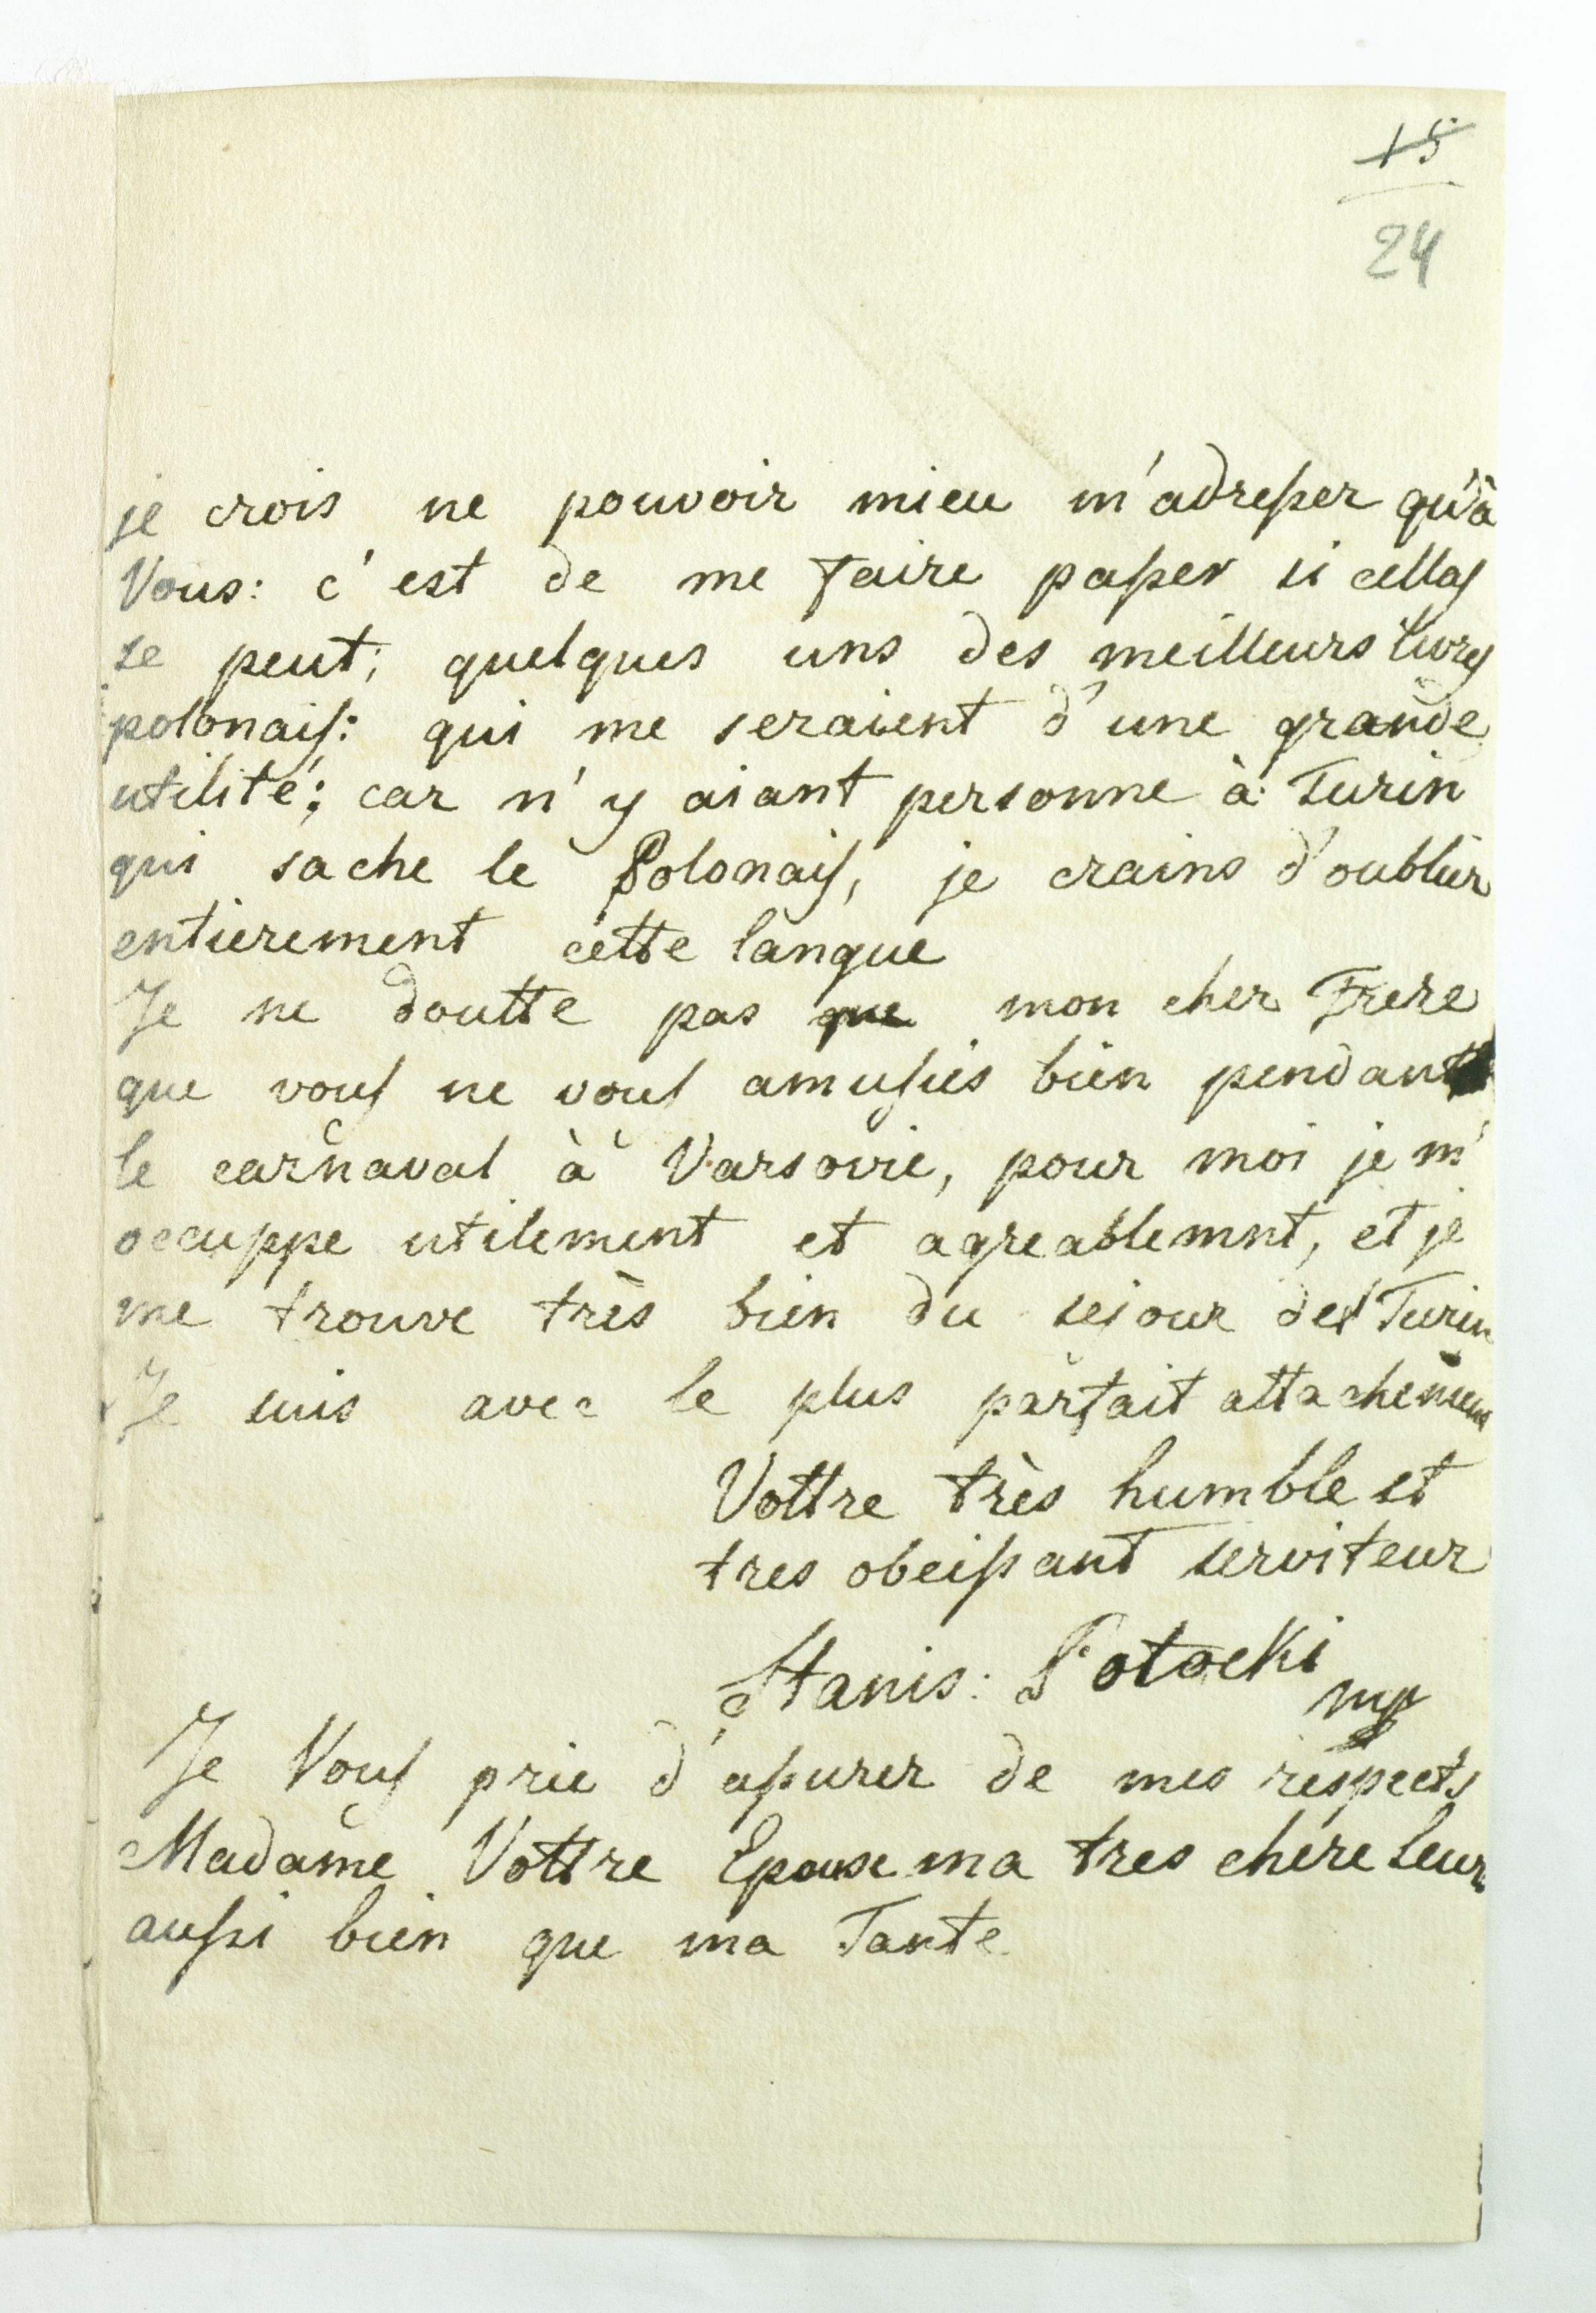 15
24
je crois ne pouvoir mieu m'adresser qu'à
Vous: c'est de me faire passer si cellas
se peut; quelques uns des meilleurs livres
polonais: qui me seraient d'une grande
utilité; car n'y aiant personne à Turin
qui sache le Polonais, je crains d'oublier
entierement cette langue
Je ne doutte pas que mon cher Frere
que vous ne vous amusies bien pendant
le carnaval à Varsovie, pour moi je m'
occuppe utilement et agreablemnt, et je
me trouve très bien du sejour de Turin
Je suis avec le plus parfait attachement
Vottre très humble et
tres obeissant serviteur
Stanis: Potocki
mp
Je Vous prie d'assurer de mes respects
Madame Vottre Epouse ma tres chere Seur
aussi bien que ma Tante